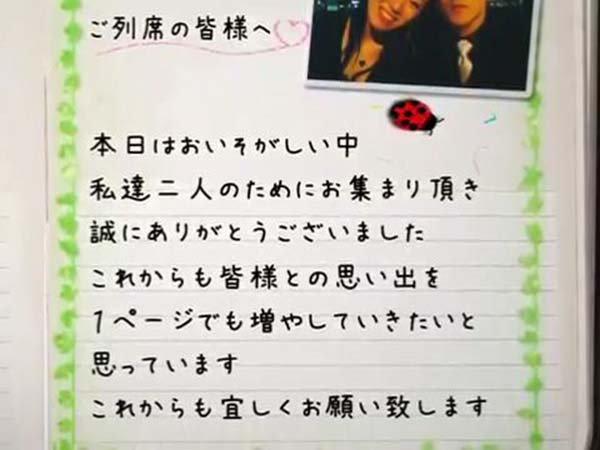 ご列席の皆様へ
本日はおいそがしい中
私達二人のためにお集まり頂き
誠にありがとうございました
これからも皆様との思い出を
1ページでも増やしていきたいと
思っています
これからも宜しくお願い致します